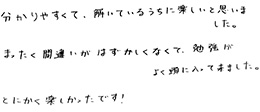 分かりやすくて、解いているうちに楽しいと思いま
した。
まったく間違いがはずかしくなくて、勉強が
よく頭に入って来ました。
とにかく楽しかったです!